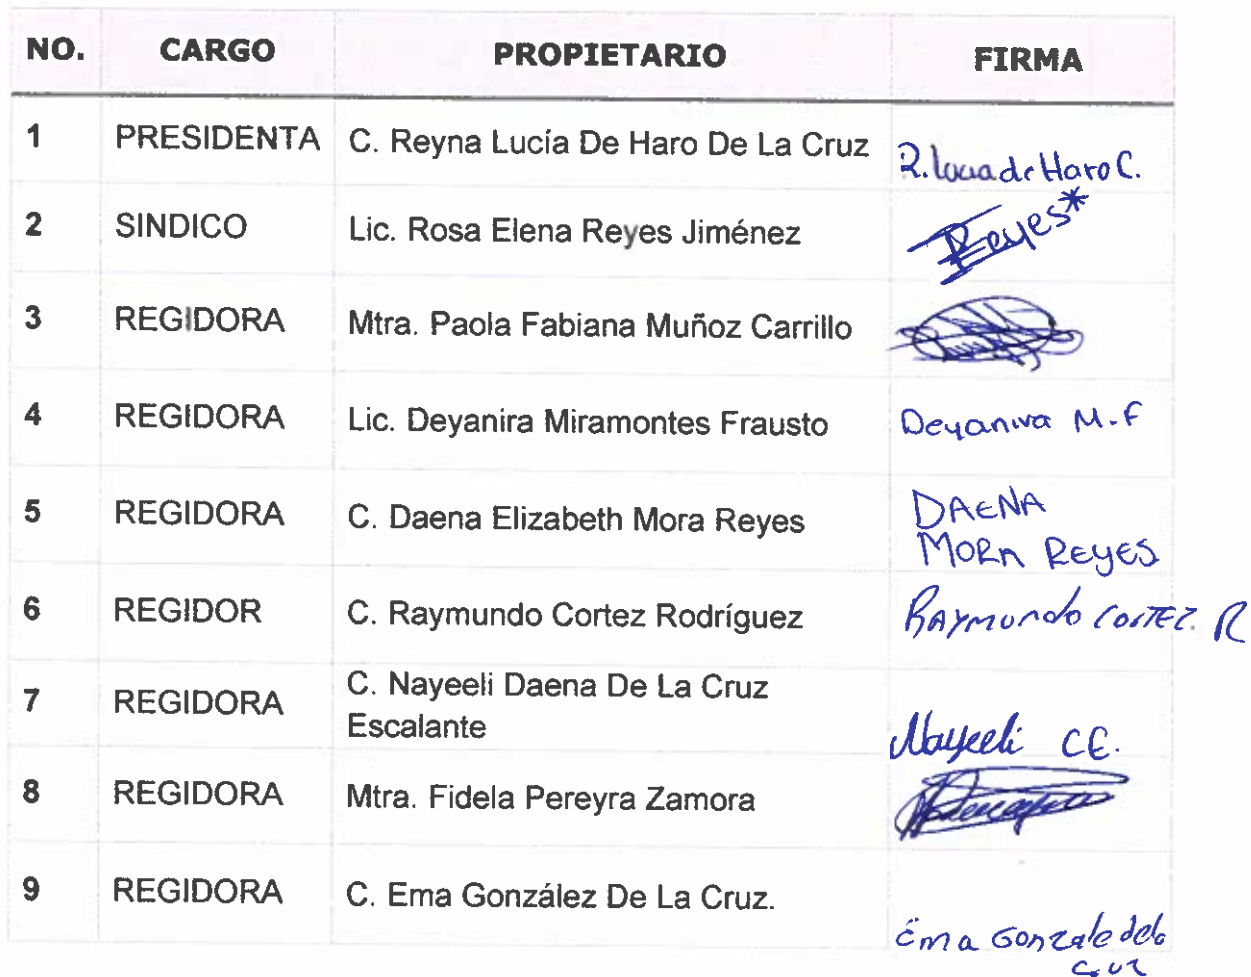 NO. CARGO PROPIETARIO FIRMA
1 PRESIDENTA C. Reyna Lucía De Haro De La Cruz R. Lucia de Haro C.
2 SINDICO Lic. Rosa Elena Reyes Jiménez Reyes*
3 REGIDORA Mtra. Paola Fabiana Muñoz Carrillo
4 REGIDORA Lic. Deyanira Miramontes Frausto Deyanira M.F
5 REGIDORA C. Daena Elizabeth Mora Reyes DAENA
MORA REYES
6 REGIDOR C. Raymundo Cortez Rodríguez RAYMUNDO CORTEZ. R
7 REGIDORA C. Nayeeli Daena De La Cruz
Escalante Nayeeli CE.
8 REGIDORA Mtra. Fidela Pereyra Zamora
9 REGIDORA C. Ema González De La Cruz.
Ema Gonzale dela
Cruz